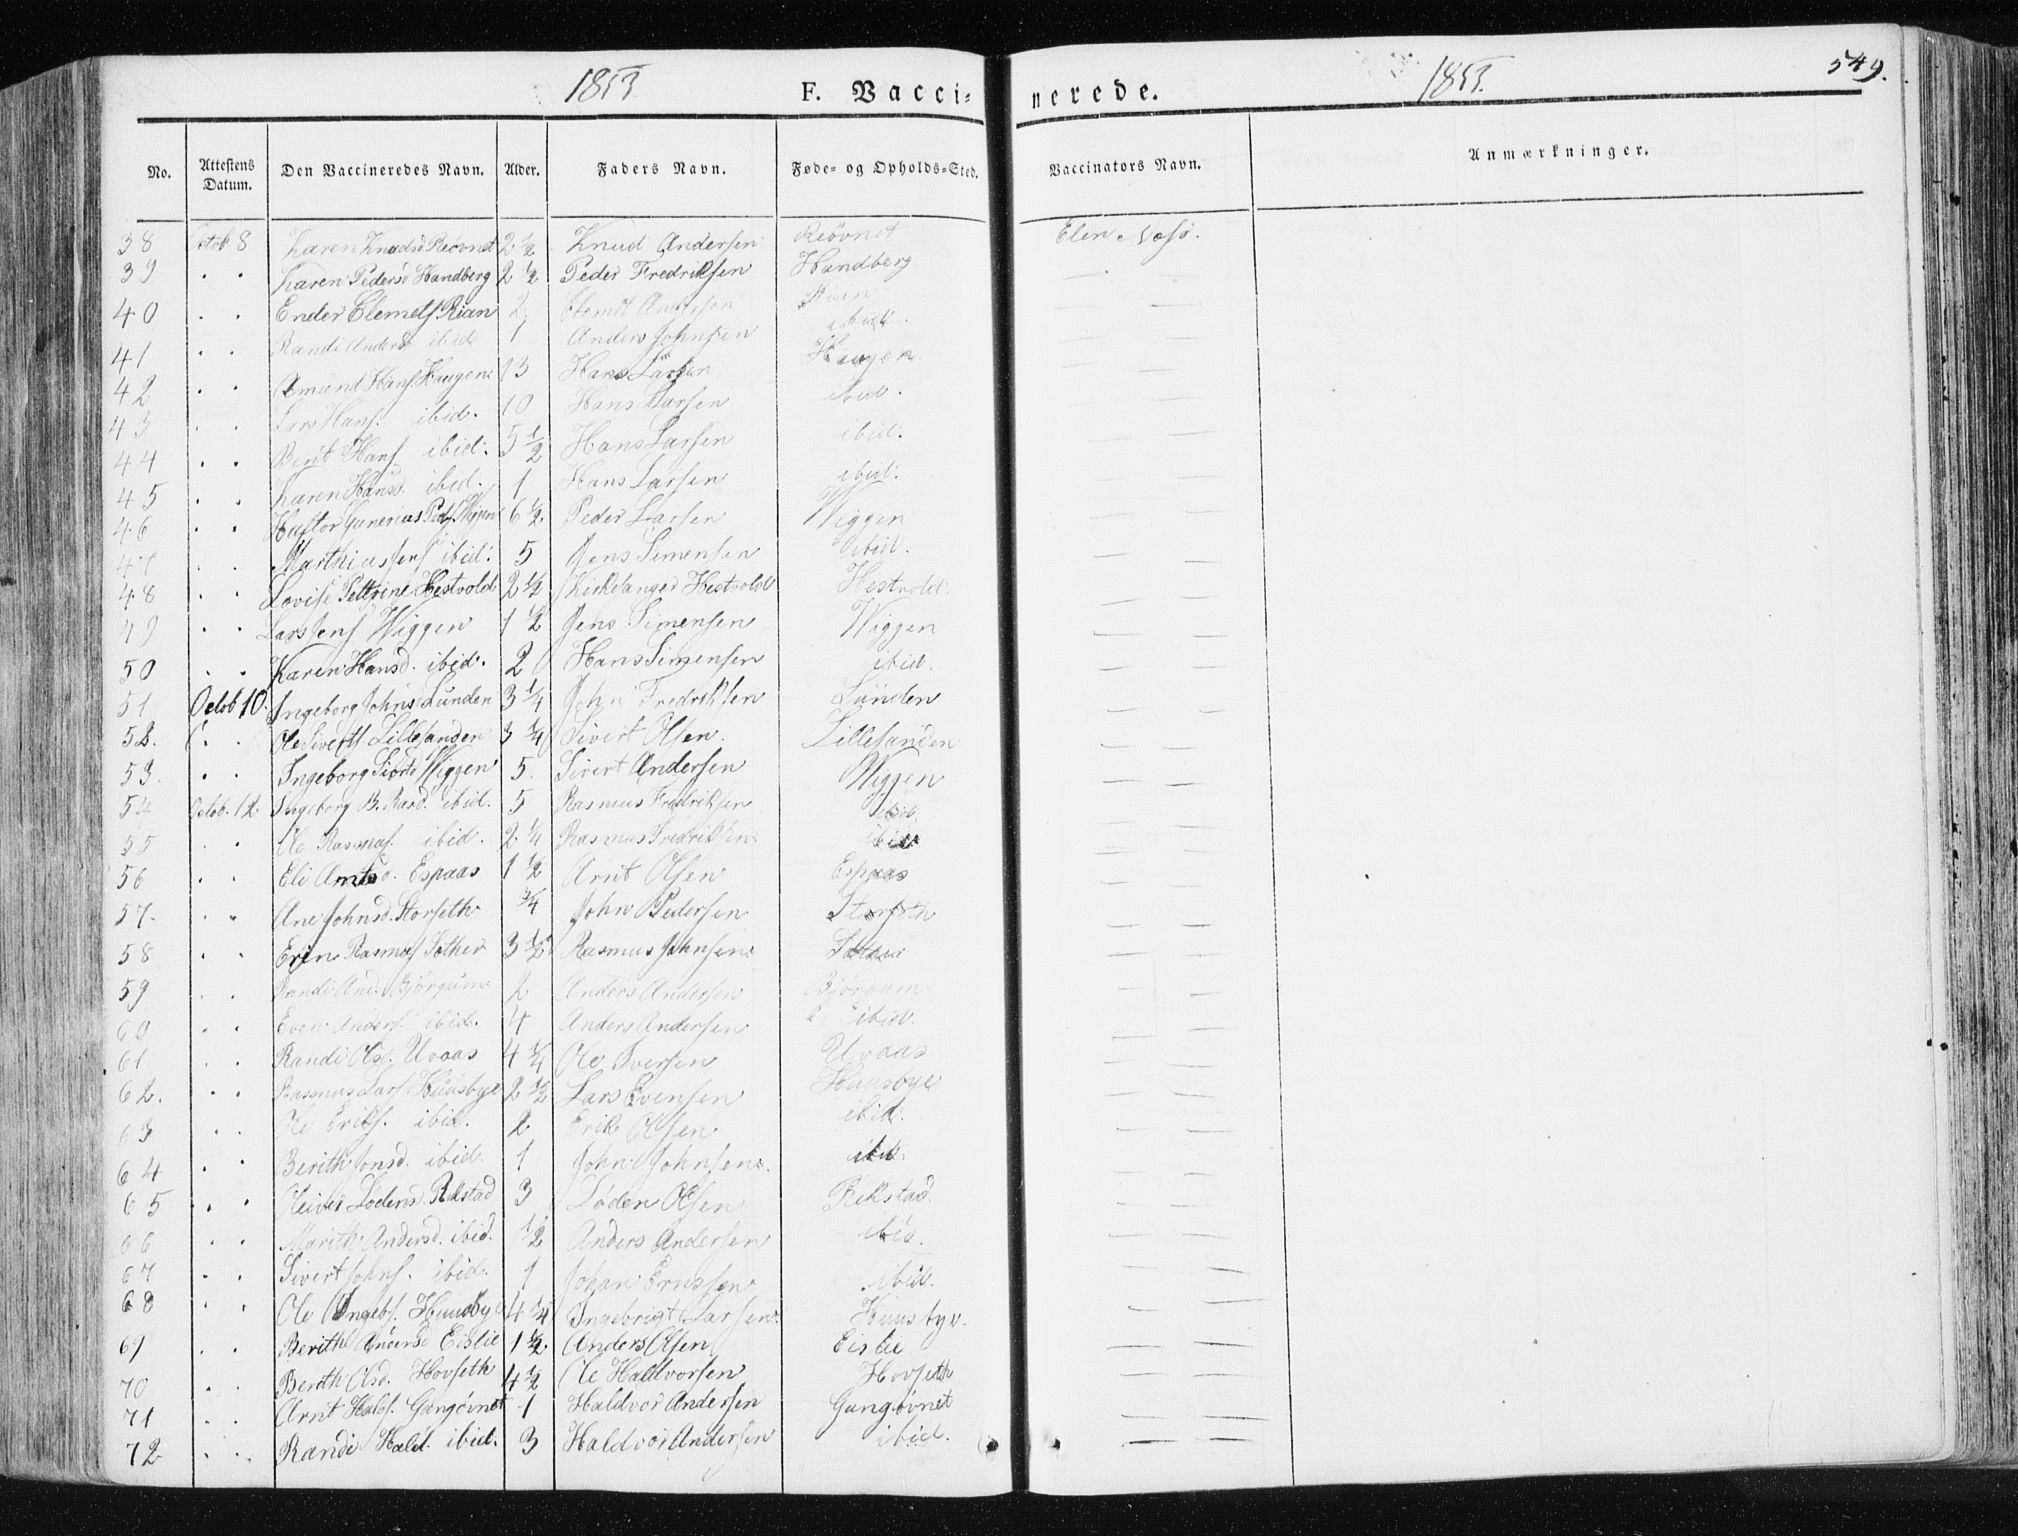 1853 F. Vaccinerede. 1853. 549.
No. Attestens Datum. Den Vaccineredes Navn. Alder. Faders Navn. Føde- og Opholds-Sted. Vaccinators Navn. Anmærkninger.
38 Octob 8 Karen Knudsd Reøvnet 2 1/2 Knud Andersen Reøvnet Elen Næss.
39 " " Karen Pedersd Handberg 2 1/2 Peder Fredriksen Handberg — —
40 " " Ender Clemets Rian 2 Clemet Andersen Rian — —
41 " " Randi Andersd ibid 1 Anders Johnsen ibid. — —
42 " " Amund Hans Haugen 13 Hans Larsen Haugen — —
43 " " Lars Hans. ibid. 10 Hans Larsen ibid. — —
44 " " Berit Hans ibid. 5 1/2 Hans Larsen ibid. — —
45 " " Karen Hansd. ibid. 1 Hans Larsen ibid. — —
46 " " Hastor Gunerius Peds Wiggen 6 1/2 Peder Larsen Wiggen — —
47 " " Marthius Jens ibid. 5 Jens Simensen ibid. — —
48 " " Lovise Pettrine Hestvold 2 1/2 Kirkesanger Hestvold Hestvold. — —
49 " " Lars Jens Wiggen 1 1/2 Jens Simensen Wiggen — —
50 " " Karen Hansd. ibid. 2 Hans Simensen ibid. — —
51 Octob 10. Ingeborg Johns Lunden 3 1/4 John Fredriksen Lunden — —
52. " " Ole Siverts Lillesanden 3 1/4 Sivert Olsen. Lillesanden — —
53. " " Ingeborg Siverts Wiggen 5. Sivert Andersen Wiggen — —
54 Octob. 12 Ingeborg B. Rasd. ibid. 5 Rasmus Fredriksen ibid. — —
55 " " Ole Rasmus. ibid. 2 1/4 Rasmus Fredriksen ibid — —
56 " " Eli Arntsd. Espaas 1 1/2 Arnt Olsen Espaas — —
57. " " Ane Johnsd. Storseth 3/4 John Pedersen Storseth — —
58 " " Eren Rasmus Sother 3 1/2 Rasmus Johnsen Sother — —
59 " " Randi And. Bjørgum 2 Anders Andersen Bjørgum. — —
60 " " Even Anders. ibid. 4 Anders Andersen ibid. — —
61 " " Randi Olsd. Uvaas 4 1/4 Ole Iversen Uvaas — —
62. " " Rasmus Lars. Huusbye 2 1/2 Lars Evensen Huusbye — —
63 " " Ole Eriks. ibid. 2 Erik Olsen ibid. — —
64 " " Berith Jonsd. ibid. 1 John Johnsen. ibid. — —
65 " " Løden Rekstad 3 Løden Olsen Rekstad. — —
66 " " Marith Andersd. ibid. 1/2 Anders Andersen ibid. — —
67 " " Sivert Johns. ibid. 1 Johan Ernssen ibid. — —
68 " " Ole Ingebs. Huusby 4 1/4 Ingebrigt Larsen Huusbye. — —
69 " " Berith Andersd Eislie 1 1/2 Anders Olsen Eislie — —
70 " " Berith Olsd. Hovseth 4 1/2 Ole Haldvorsen Hovseth — —
71 " " Arnt Halds. Gangøvnet 1 Haldvor Andersen Gangøvnet — —
72 " " Randi Hald. ibid. 3 Haldvor Andersen ibid. — —